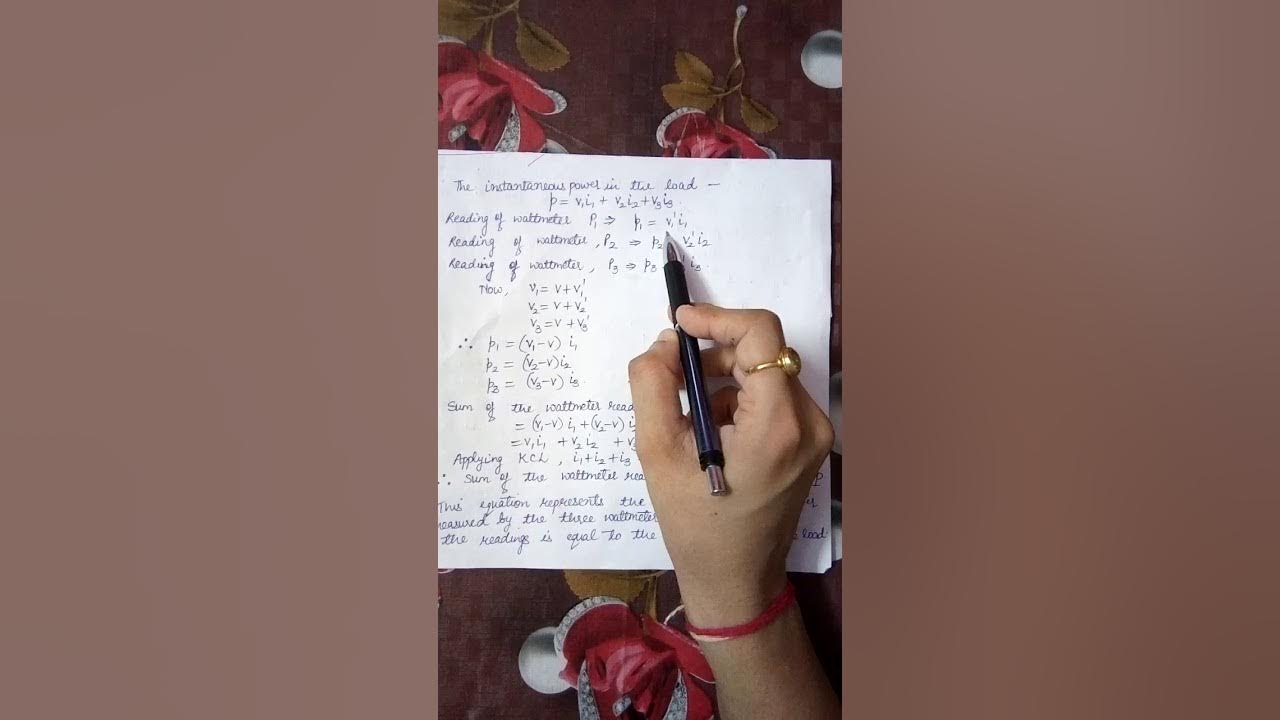 The instantaneous power in the load —
p = v₁i₁ + v₂i₂ + v₃i₃.
Reading of wattmeter P₁ ⇒ p₁ = v₁'i₁
Reading of wattmeter, P₂ ⇒ p₂ v₂'i₂
Reading of wattmeter, P₃ ⇒ p₃ 'i₃.
Now, v₁ = v + v₁'
v₂ = v + v₂'
v₃ = v + v₃'
∴ p₁ = (v₁-v) i₁
p₂ = (v₂-v)i₂
p₃ = (v₃-v) i₃.
Sum of the wattmeter read
= (v₁-v) i₁ + (v₂-v) i₂
= v₁i₁ + v₂i₂ + v₃
Applying KCL, i₁+i₂+i₃
∴ Sum of the wattmeter rea P
This equation represents the er
measured by the three wattmeter
the readings is equal to the load.